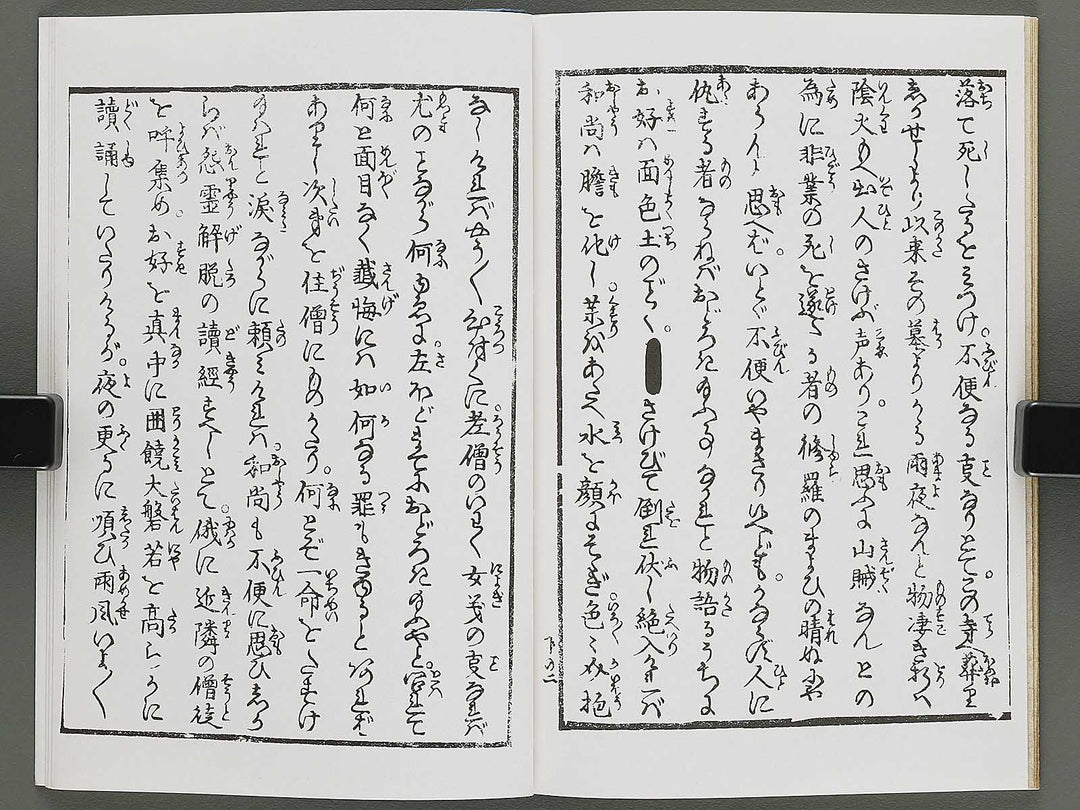 落て死したるをミつけ。不便なる事なりとてこの寺へ葬り
しかせしより以来その墓よりかゝる雨夜なんと物凄き折へ
陰火もへ出人のさけぶ声あり。これ思ふに山賊なんとの
為に非業の死を遂たる者の修羅のまよひの晴ぬにや
あらんと思へばいとゞ不便いやまさりいへども。かならず人に
仇する者ならねばおどろき給ふ事なかれと物語るうちに
お好ハ面色土のごとく。さけびて倒れ伏し絶入けれバ
和尚ハ膽を化し薬をあたへ水を顔にそゝぎ色々介抱
なしけれバやう〳〵心付くに老僧のいわく女気の事なれバ
尤のことながら何ゆゑに左ほどまでにおどろき給ふやと。宣へて
何と面目なく懺悔にハ如何なる罪もきゆるとあれば
ありし次第を住僧にものがたり。何とぞ一命をたすけ
給はれと涙ながらに頼ミけれハ。和尚も不便に思ひしか
らバ怨霊解脱の讀經すべしとて。俄に近隣の僧徒
を呼集め。お好を真中に囲饒大磐若を高らかに
讀誦していたりけるが。夜の更るに順ひ雨風いよ〳〵
下の二